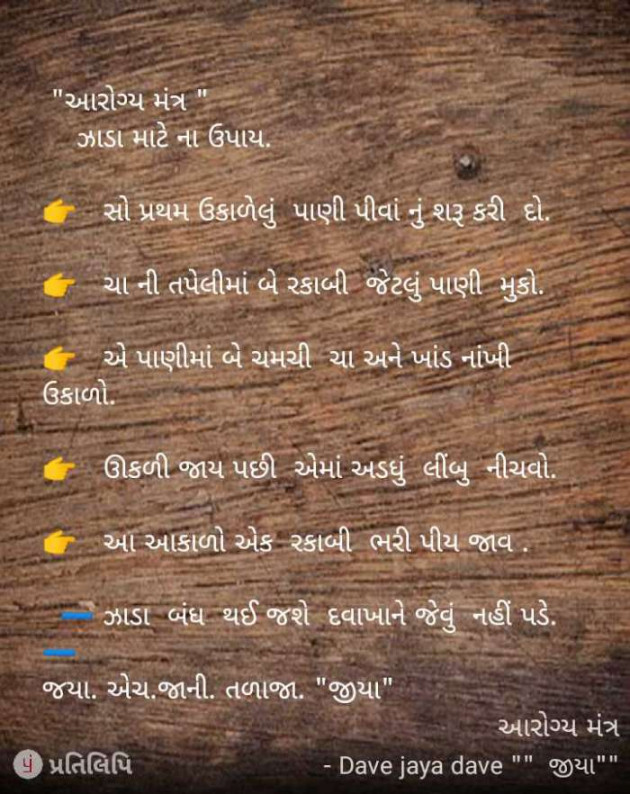 "આરોગ્ય મંત્ર "
ઝાડા માટે ના ઉપાય.
👉 સો પ્રથમ ઉકાળેલું પાણી પીવાં નું શરૂ કરી દો.
👉 ચા ની તપેલીમાં બે રકાબી જેટલું પાણી મુકો.
👉 એ પાણીમાં બે ચમચી ચા અને ખાંડ નાંખી
ઉકાળો.
👉 ઊકળી જાય પછી એમાં અડધું લીંબુ નીચવો.
👉 આ આકાળો એક રકાબી ભરી પીય જાવ .
➖ ઝાડા બંધ થઈ જશે દવાખાને જેવું નહીં પડે.
➖
જયા. એચ.જાની. તળાજા. "જીયા"
આરોગ્ય મંત્ર
પ્રતિલિપિ - Dave jaya dave "" જીયા""